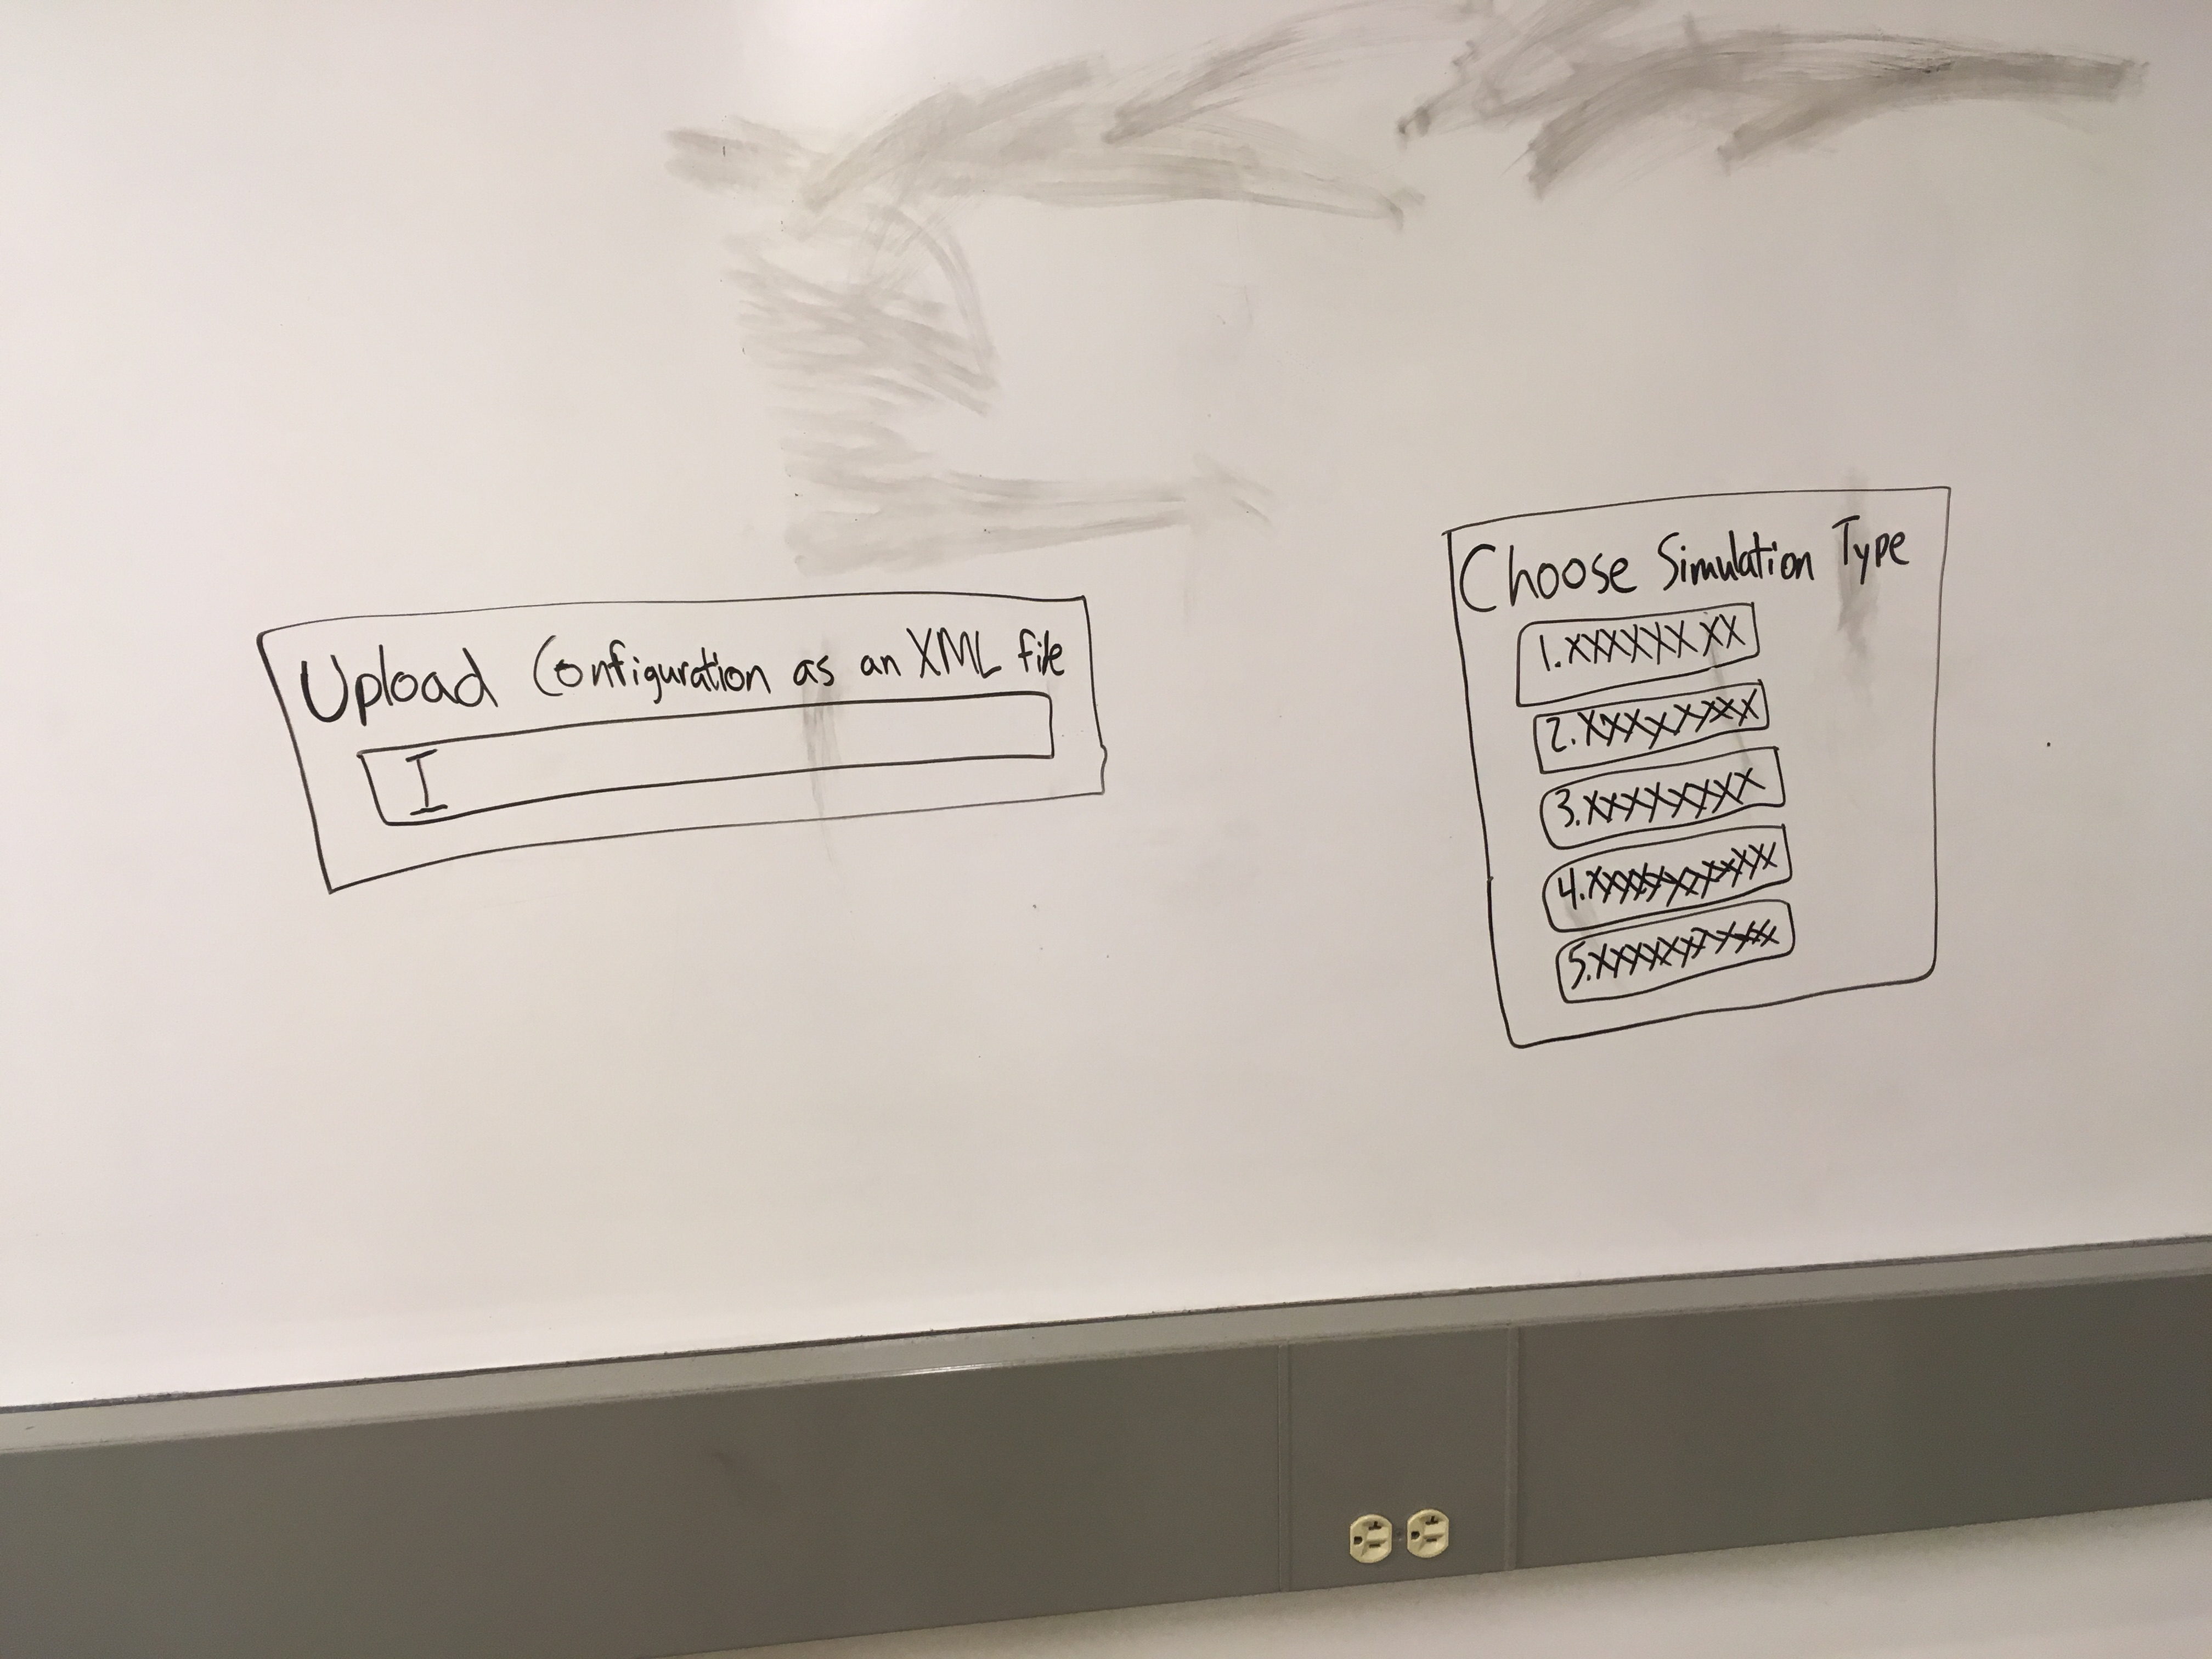 Upload Configuration as an XML file
I
Choose Simulation Type
1. XXXXXX XX
2. XXXXXXXXX
3. XXXXXXXXX
4. XXXXXXXXXXX
5. XXXXXXXXXXX